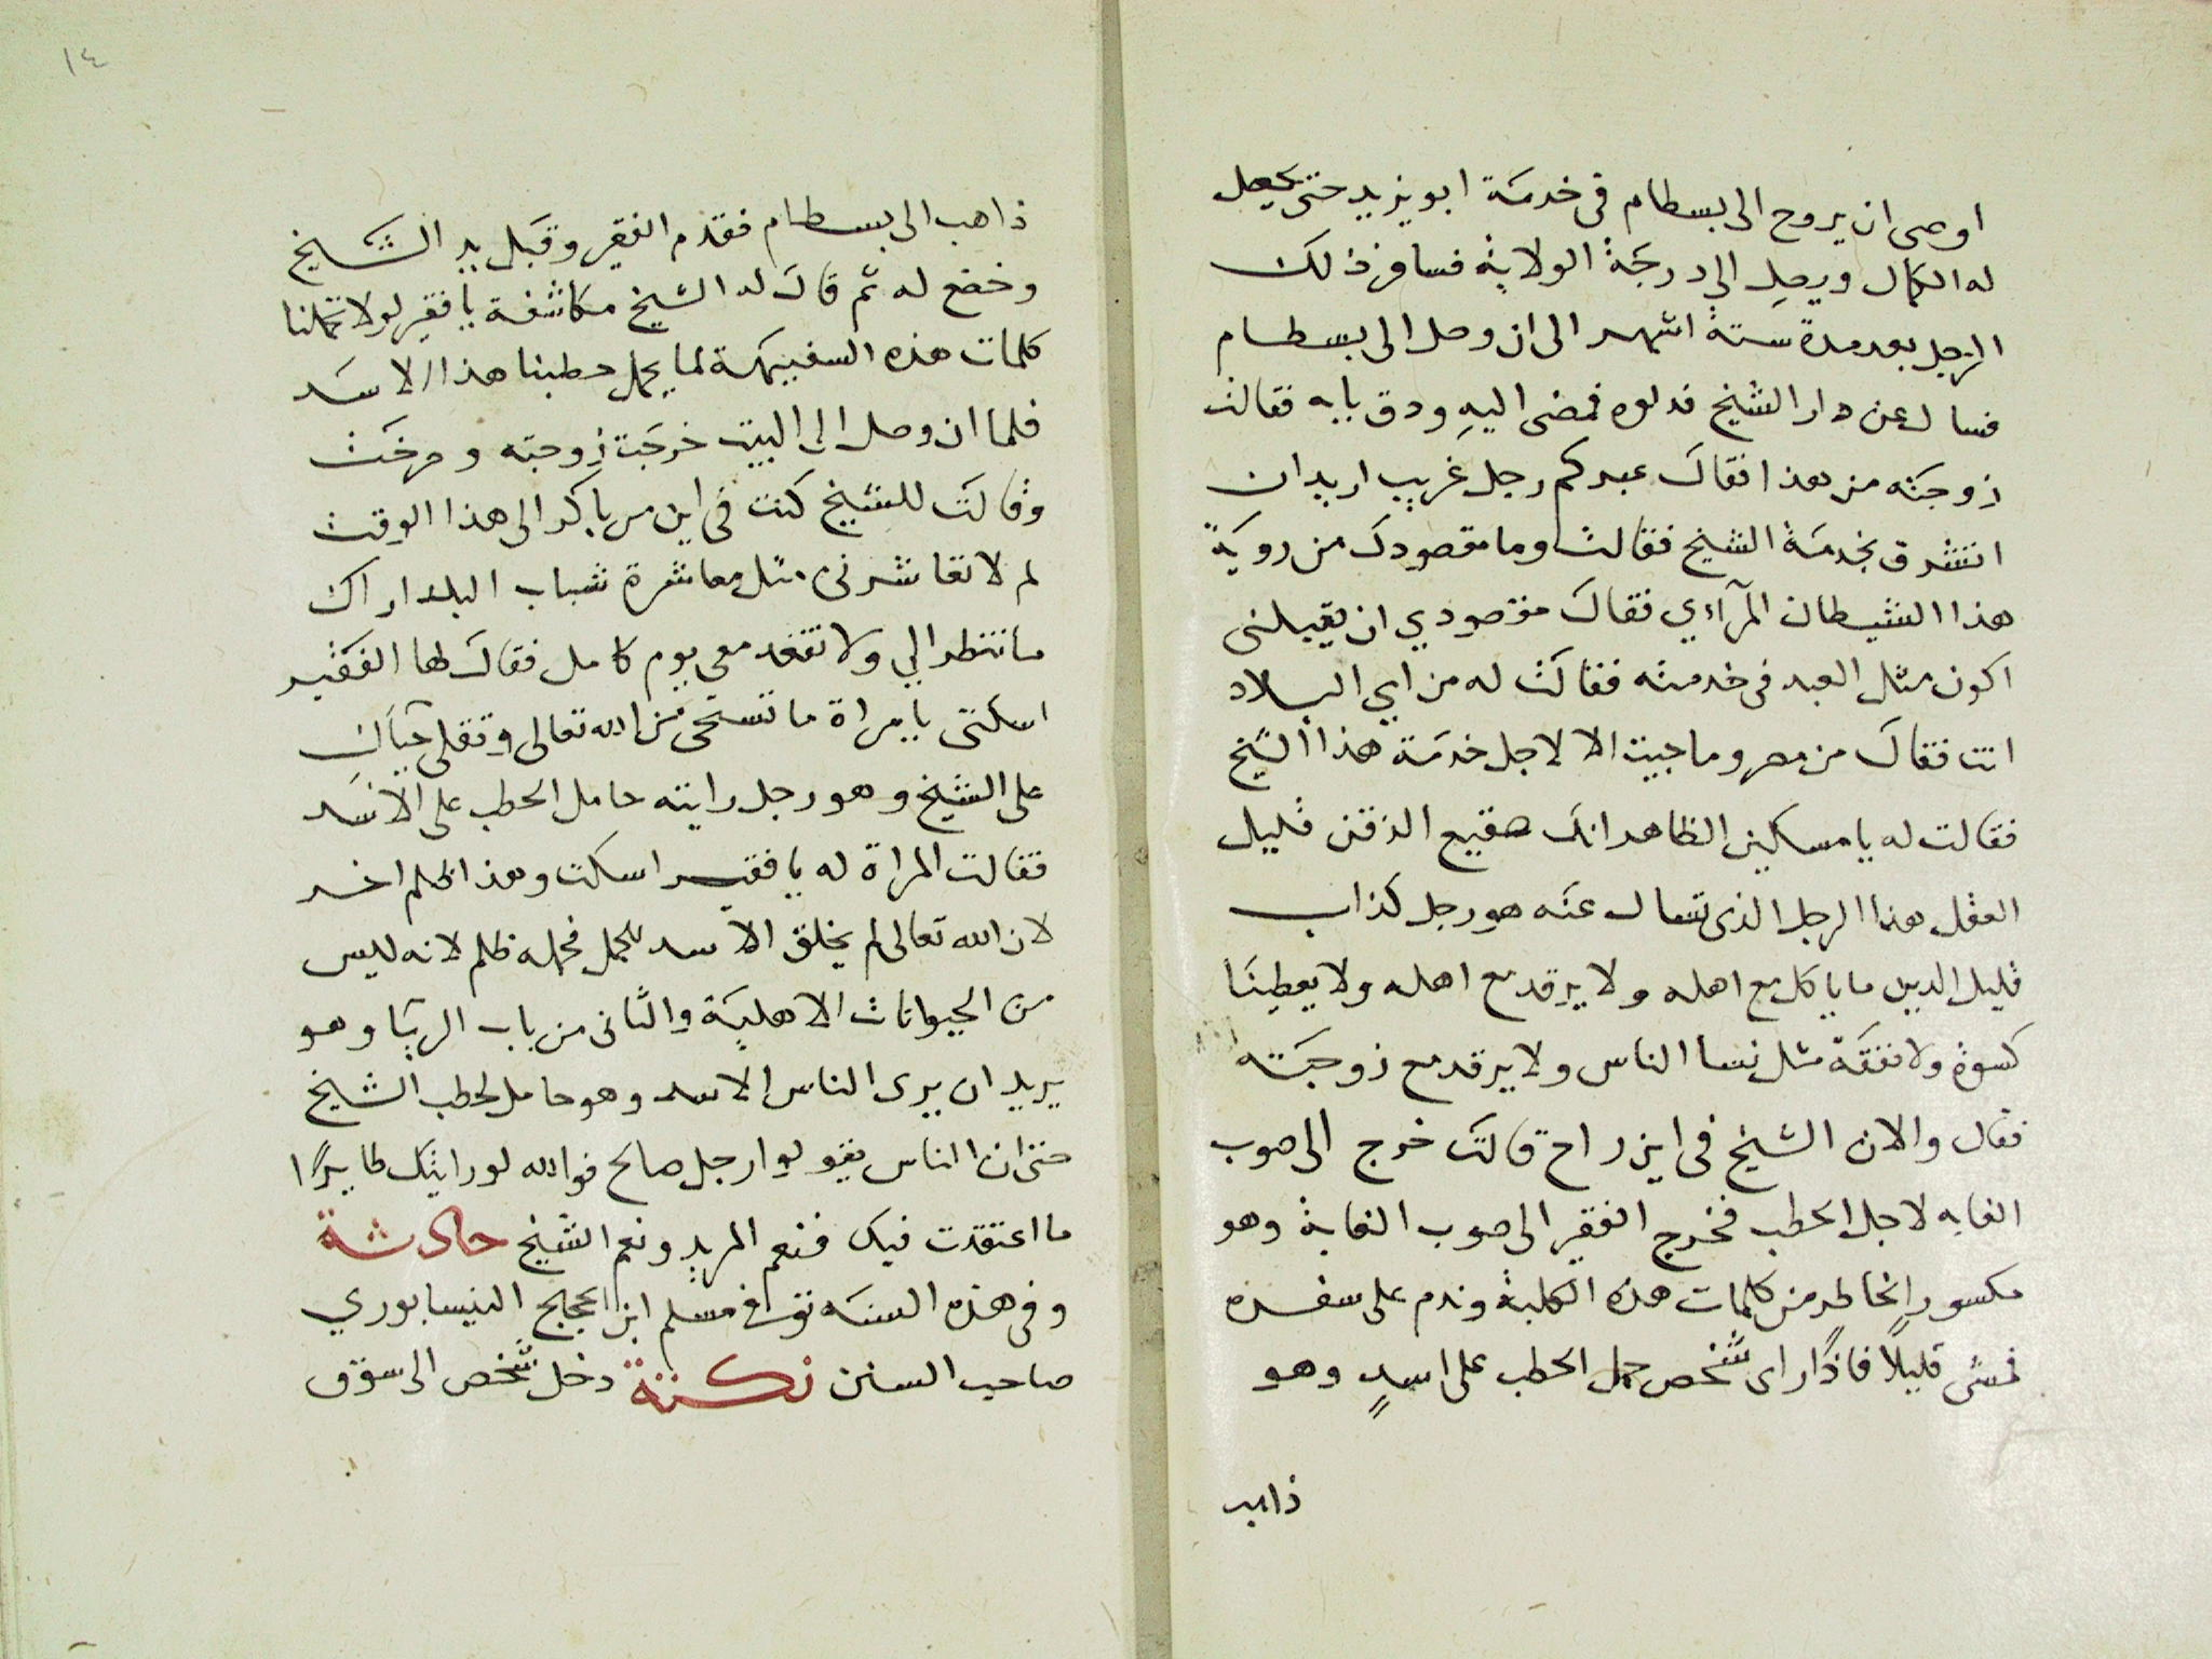 اوصى ان يروح الى بسطام فى خدمَة ابو يزيد حتى يحصل
له الكمال ويصل الى درجَة الولاية فسافر ذلك
الرجل بعد مدة ستة اشهر الى ان وصل الى بسطام
فسال عن دار الشيخ فدلوه فمضى اليهِ ودق بابه فقالت
زوجته من هذا فقاك عبدكم رجل غريب اريد ان
اتشرق بخدمَة الشيخ فقالت وما مقصودك من رويَة
هذا الشيطان المرآءي فقاك مقصودي ان يقبلنى
اكون مثل العبد فى خدمته فقالَت له من اي البلاد
انت فقاك من مصر وما جيت الا لاجل خدمَة هذا الشيخ
فقالت له يا مسكين الظاهر انك صقيع الذقن قليل
العقل هذا الرجل الذى تسال عنَه هو رجل كذاب
قليل الدين ما ياكل مع اهله ولا يرقد مع اهله ولا يعطينَا
كسوة ولا نفقَة مثل نسا الناس ولا يرقد مع زوجَته
فقال والان الشيخ فى اين راح قالَت خرج الى صوب
الغابه لاجل الحطب فخرج الفقير الى صوب الغابة وهو
مكسور الخاطر من كلمات هذه الكلبة وندم على سفره
فمشى قليلاً فاذًا راى شخص حمل الحطب على اسدٍ وهو
ذاهب
١٤
ذاهب الى بسطام فقدم الفقير وقبَل يد الشيخ
وخضع له ثم قاك له الشيخ مكاشفة يا فقير لولا تحملنا
كلمات هذه السفيهة لما يحمل حطبنا هذا الاسَد
فلما ان وصل الى البيت خرجَت زوجته وصرخَت
وقالَت للشيخ كنت فى اين من باكر الى هذا الوقت
لم لا تعاشرنى مثل معاشرة شباب البلد اراك
ما تنظر الي ولا تقعد معى يوم كامل فقاك لها الفقير
اسكتى يا مراة ما تستحى من الله تعالى وتقلى حيَاك
على الشيخ وهو رجل رايته حامل الحطب على الاسَد
فقالت المراة له يا فقير اسكت وهذا ظلم اخر
لان الله تعالى لم يخلق الاسد للحمل فحمله ظلم لانه ليس
من الحيوانات الاهليَة والثانى من باب الريَا وهو
يريد ان يرى الناس الاسد وهو حامل لحطب الشيخ
حتى ان الناس يقولوا رجل صالح فوالله لو رايتك طايرًا
ما اعتقدت فيك فنعم المريد ونعم الشيخ حادثة
وفى هذه السنَه توفى مسلم ابن الحجاج النيسابوري
صاحب السنن نكتة دخل شخص الى سوق